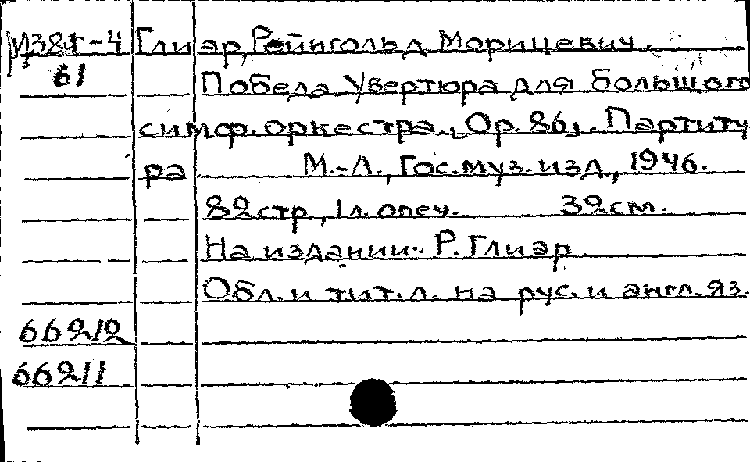 М381-4 Глиэр, Рейнгольд Морицевич.
61 Победа Увертюра для большого
симф. оркестра., Ор. 86,. Партиту
ра М.-Л., Гос. муз. изд., 1946.
82 стр., 1 л. опеч. 32 см.
На издании: Р. Глиэр
Обл. и тит. л. на рус. и англ. яз.
66212
66211